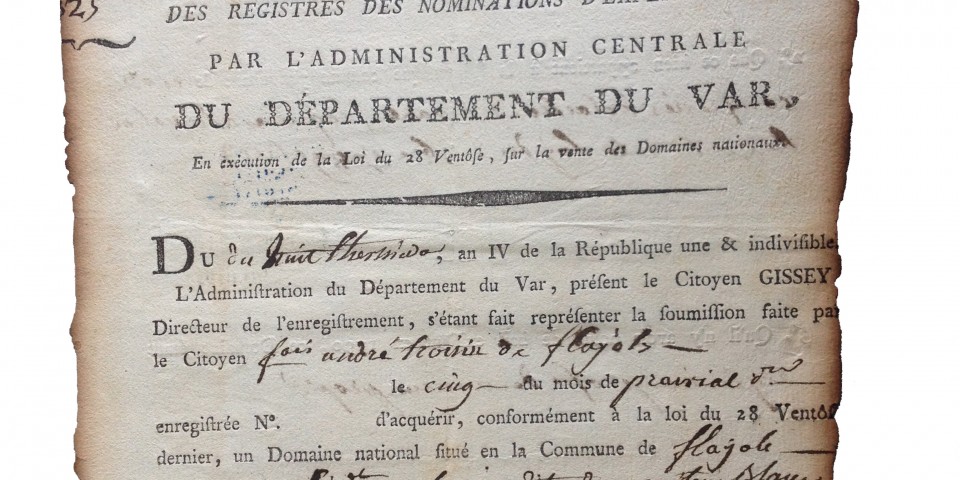 525
DES REGISTRES DES NOMINATIONS
PAR L'ADMINISTRATION CENTRALE
DU DÉPARTEMENT DU VAR,
En exécution de la Loi du 28 Ventôse, sur la vente des Domaines nationaux.
DU du huit thermidor, an IV de la République une & indivisible,
L'Administration du Département du Var, présent le Citoyen GISSEY
Directeur de l'enregistrement, s'étant fait représenter la soumission faite par
le Citoyen fois andré troisin de flayols
le cinq du mois de prairial dnr
enregistrée N°. d'acquérir, conformément à la loi du 28 Ventôse
dernier, un Domaine national situé en la Commune de flayols